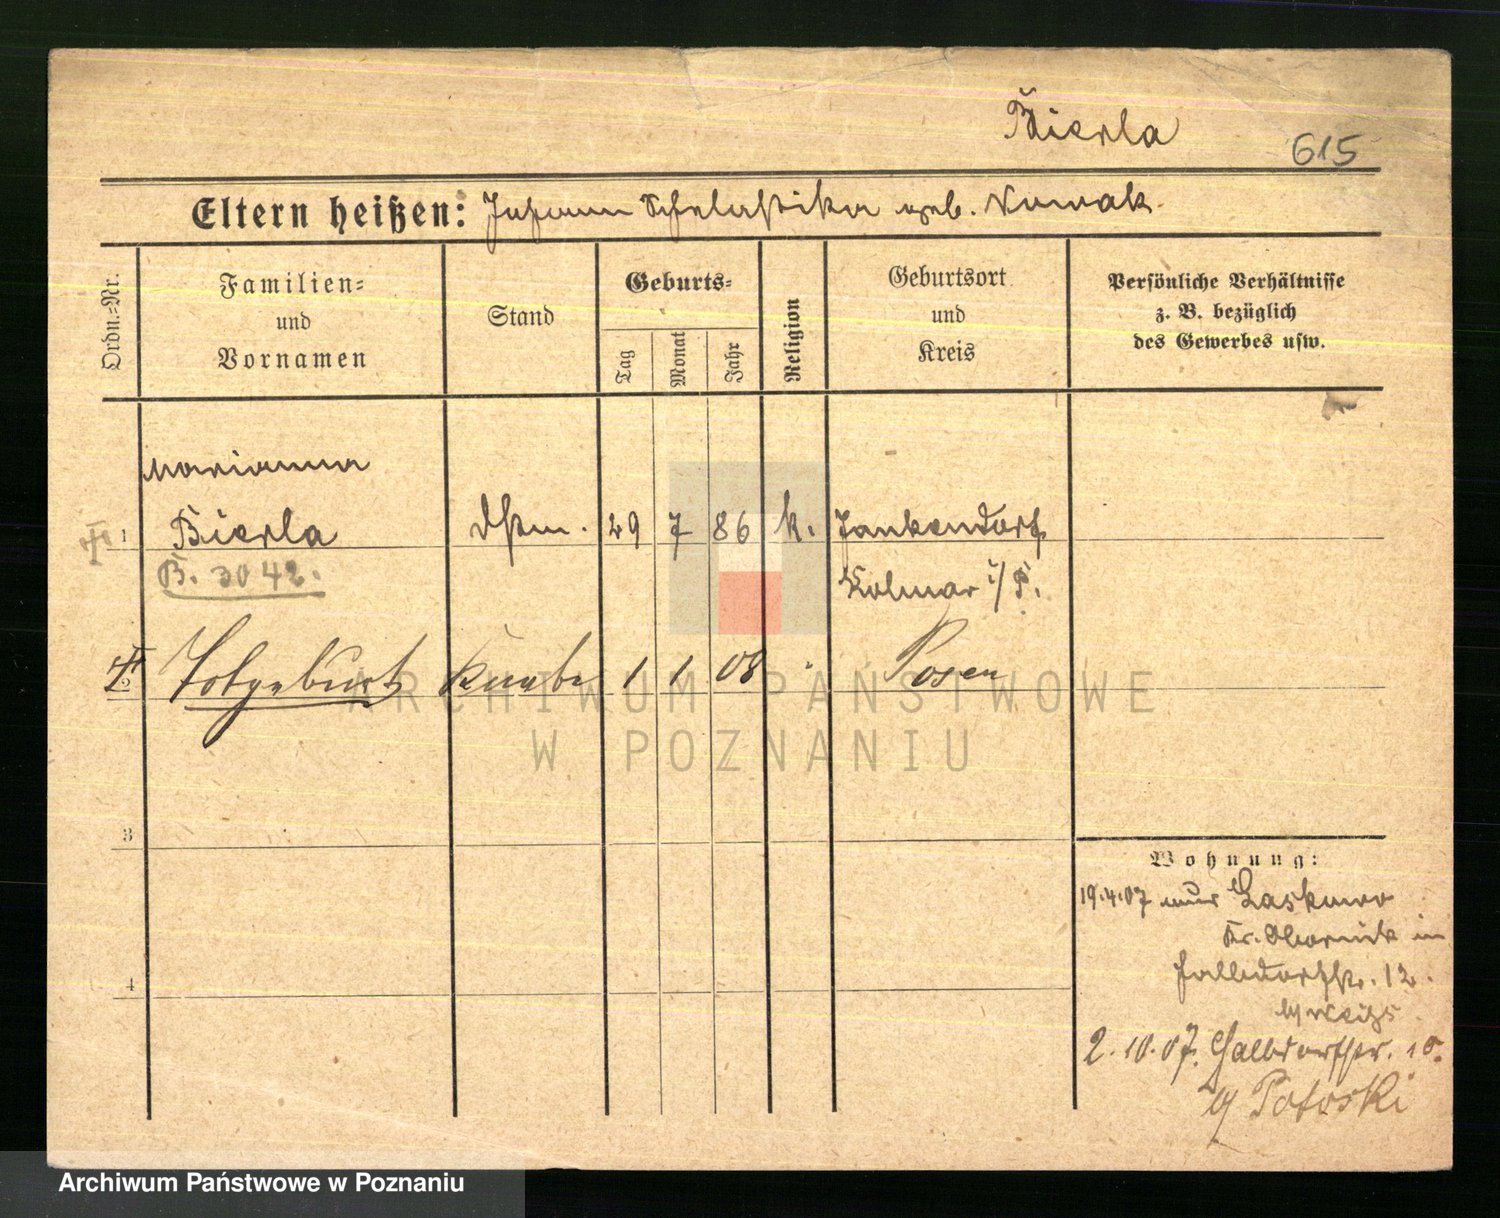 Bierla
615
Eltern heißen: Johann Scholastika geb. Nowak.
Ordn.=Nr.
Familien=
und
Vornamen
Stand
Geburts=
Tag
Monat
Jahr
Religion
Geburtsort
und
Kreis
Persönliche Verhältnisse
z. B. bezüglich
des Gewerbes usw.
Marianna
1 Bierla Dstm. 29 7 86 k. Jankendorf
B. 3042. Kolmar i/P.
2 Totgeburt Knabe 1 1 08 Posen
3
4
Wohnung:
19.4.07 Laskowo
Kr. Obornik in
Halbdorfstr. 12.
b/
2.10.07. Halbdorfstr. 10.
b/ Potoski
ARCHIWUM PAŃSTWOWE
W POZNANIU
Archiwum Państwowe w Poznaniu